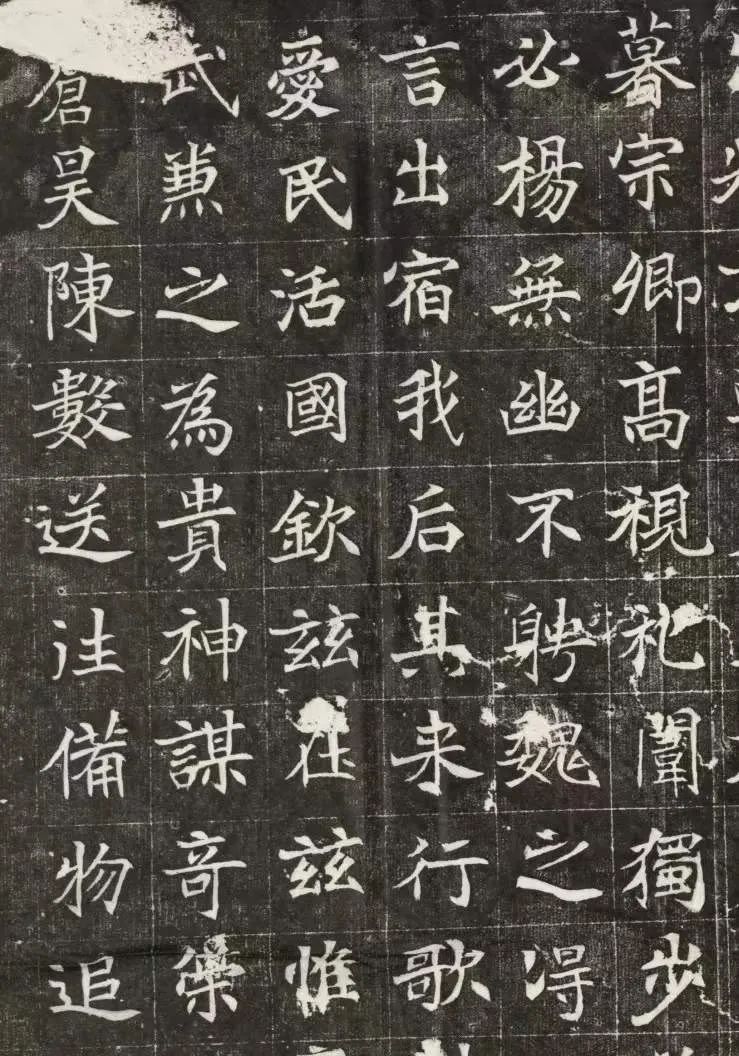 暮宗卿高視礼闈獨步
必楊無幽不聘魏之淂
言出宿我后其来行歌
愛民活國欽兹在兹惟
武兼之為貴神謀奇
倉昊陳數送往備物追